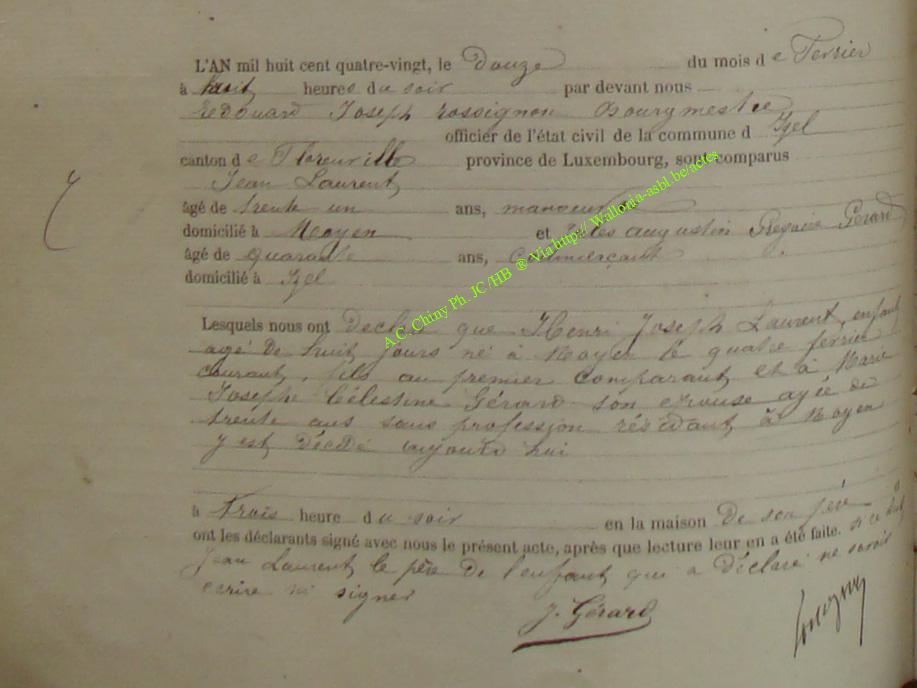 L'AN mil huit cent quatre-vingt, le Douze du mois de Fevrier
à huit heures du soir par devant nous
Edouard Joseph Rossignon Bourgmestre
officier de l'état civil de la commune d Izel
canton de Florenville province de Luxembourg, sont comparus
Jean Laurent
âgé de trente un ans, manoeuvre
domicilié à Moyen et Jules augustin Gérard
âgé de quarante ans, Commerçant
domicilié à Izel
Lesquels nous ont Declaré que Henri Joseph Laurent, enfant
agé de huit jours né à Moyen le quatre fevrier
courant, fils au premier Comparant et à Marie
Josephe Célestine Gérard son epouse agée de
trente ans sans profession résidant à Moyen
y est décédé aujourd hui
à trois heure du soir en la maison De son père
ont les déclarants signé avec nous le présent acte, après que lecture leur en a été faite. si ce n'est
Jean Laurent le père de l'enfant qui a déclaré ne savoir
ecrire ni signer
J. Gérard
A.C. Chiny Ph. JC/HB ® Via http:// Wallonia-asbl.be/actes